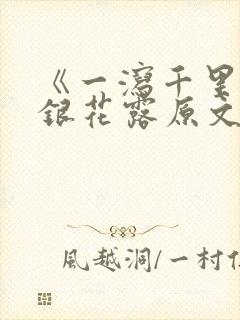 《一瀉千里
銀花露原文
風越洞/一村